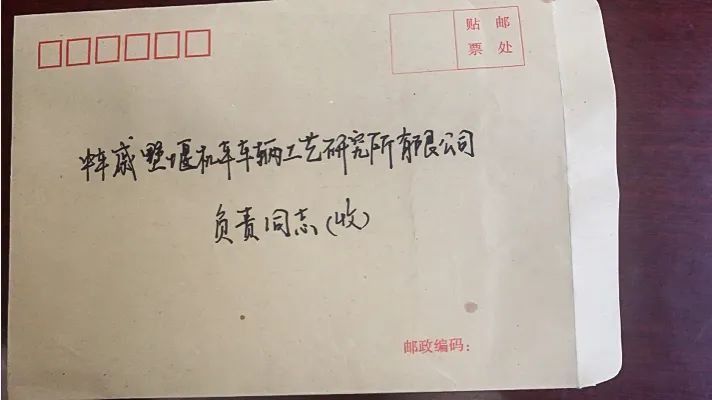 贴 邮
票 处
中车戚墅堰机车车辆工艺研究所有限公司
负责同志(收)
邮政编码: